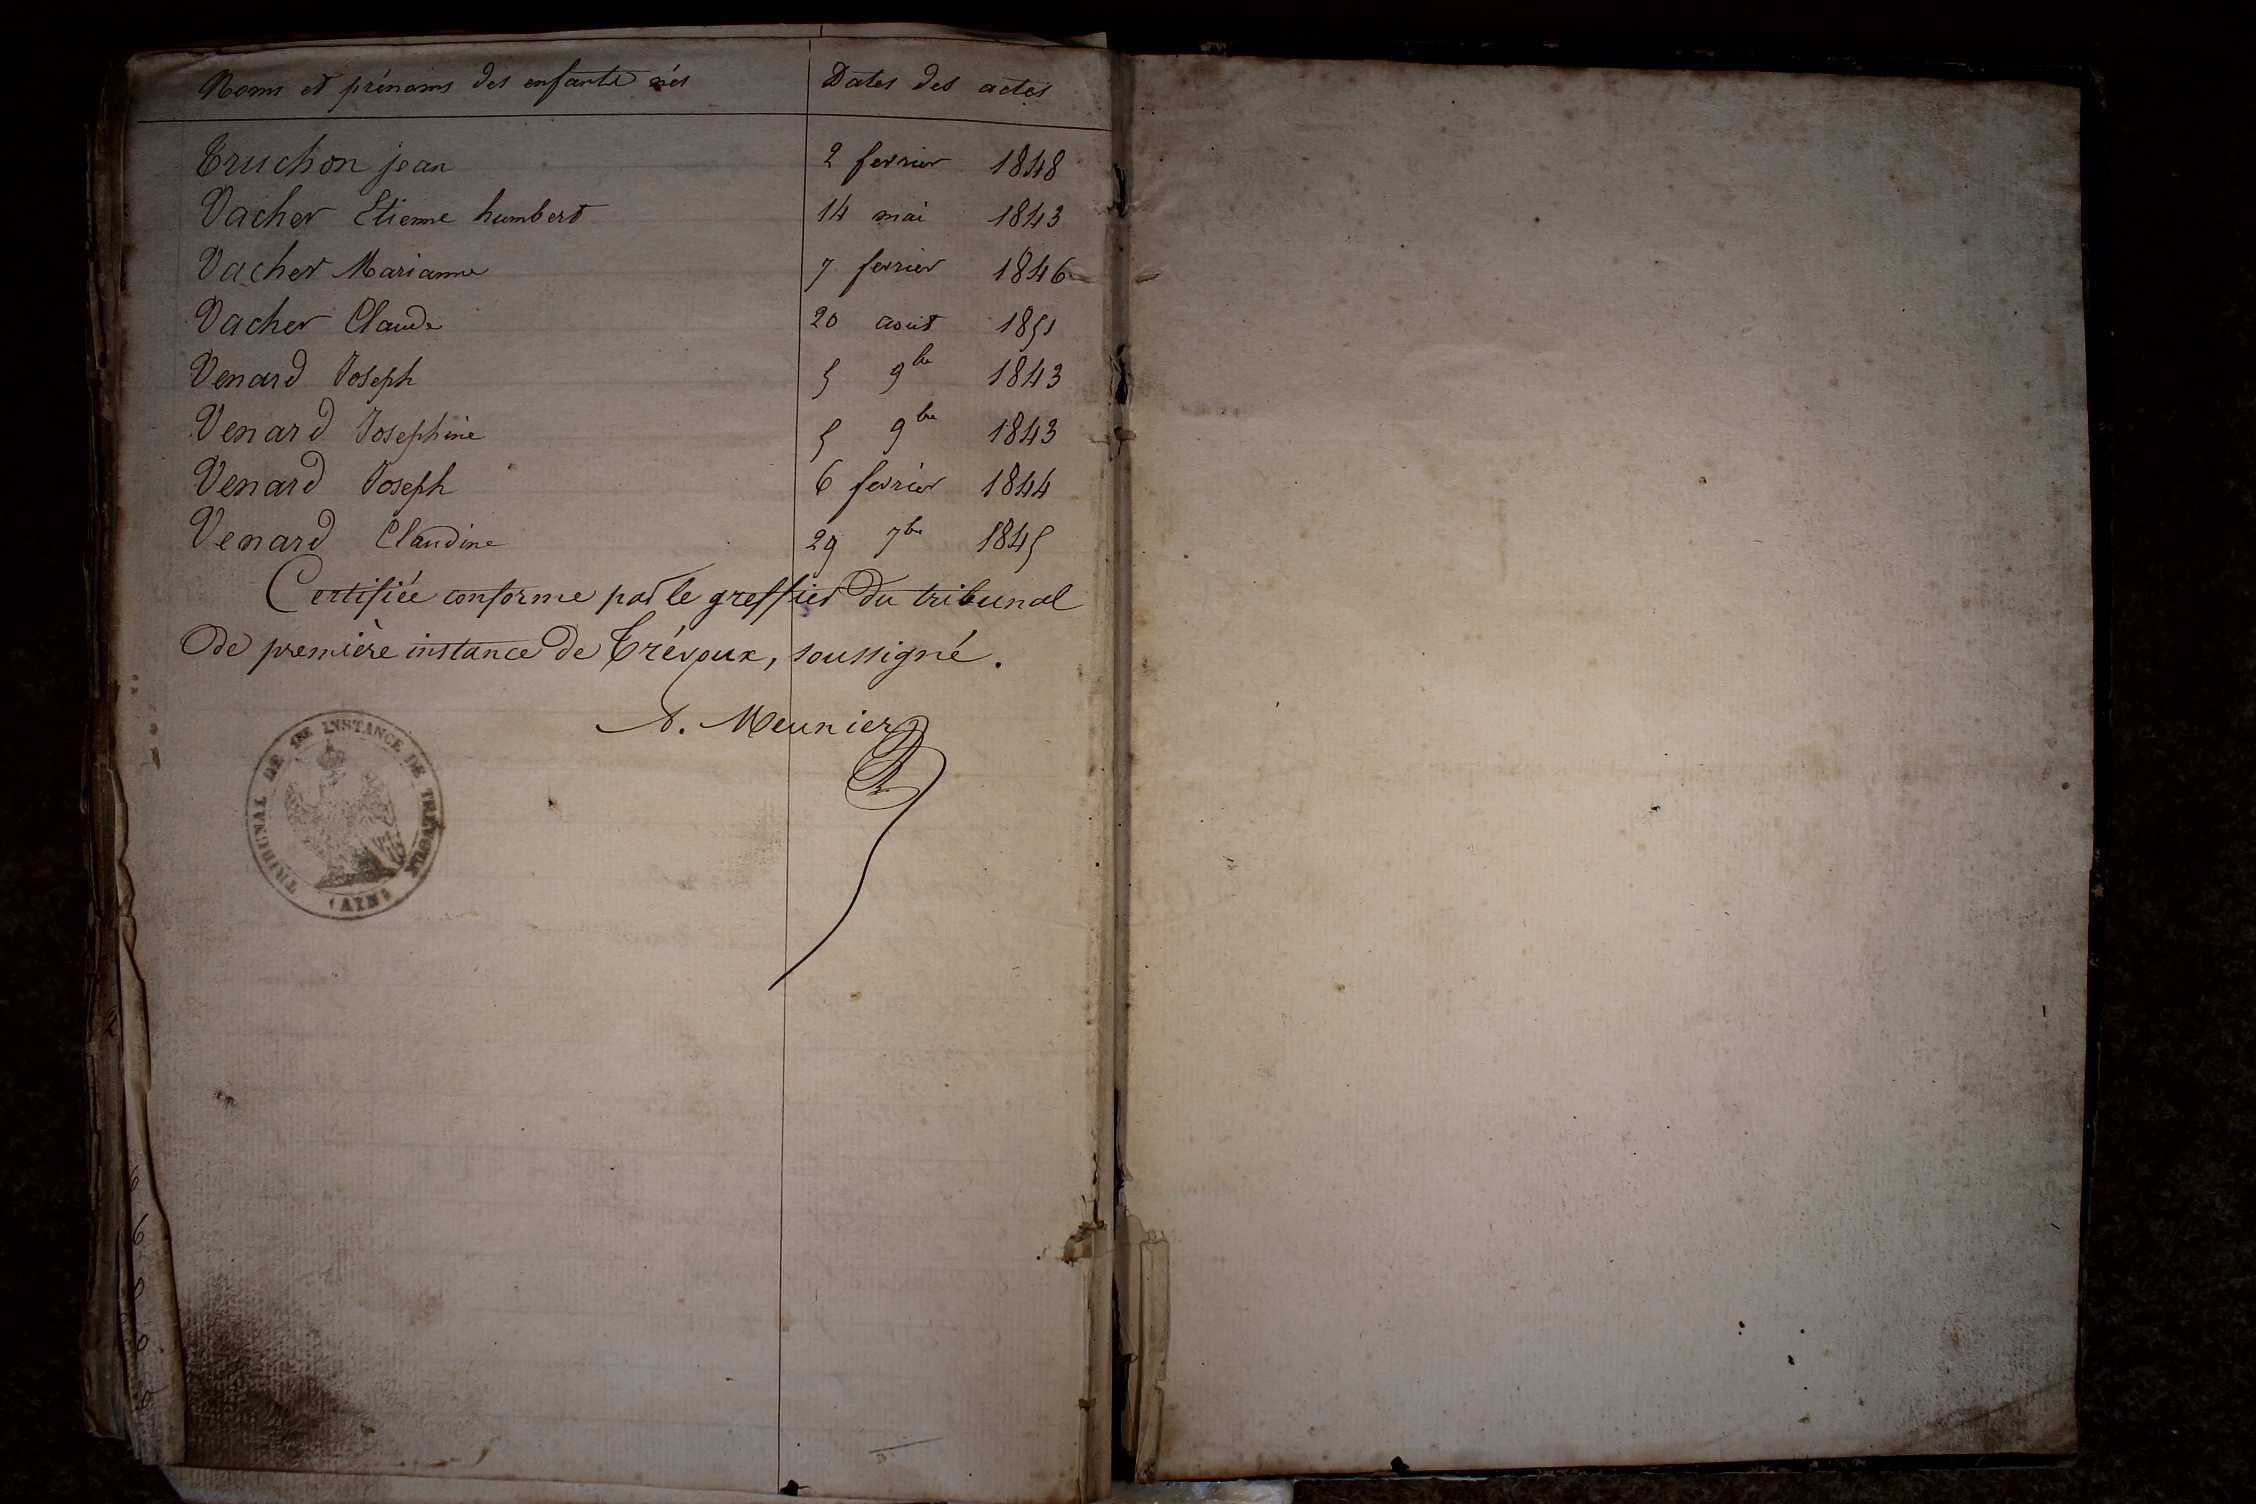 Noms et prénoms des enfants nés Dates des actes
Truchon jean 2 fevrier 1848
Vacher Etienne humbert 14 mai 1843
Vacher Marianne 7 fevrier 1846
Vacher Claude 20 aout 1851
Venard Joseph 5 9bre 1843
Venard Josephine 5 9bre 1843
Venard Joseph 6 fevrier 1844
Venard Claudine 29 7bre 1845
Certifiée conforme par le greffier du tribunal
de première instance de Trévoux, soussigné.
A. Meunier
TRIBUNAL DE 1RE INSTANCE DE TRÉVOUX
(AIN)